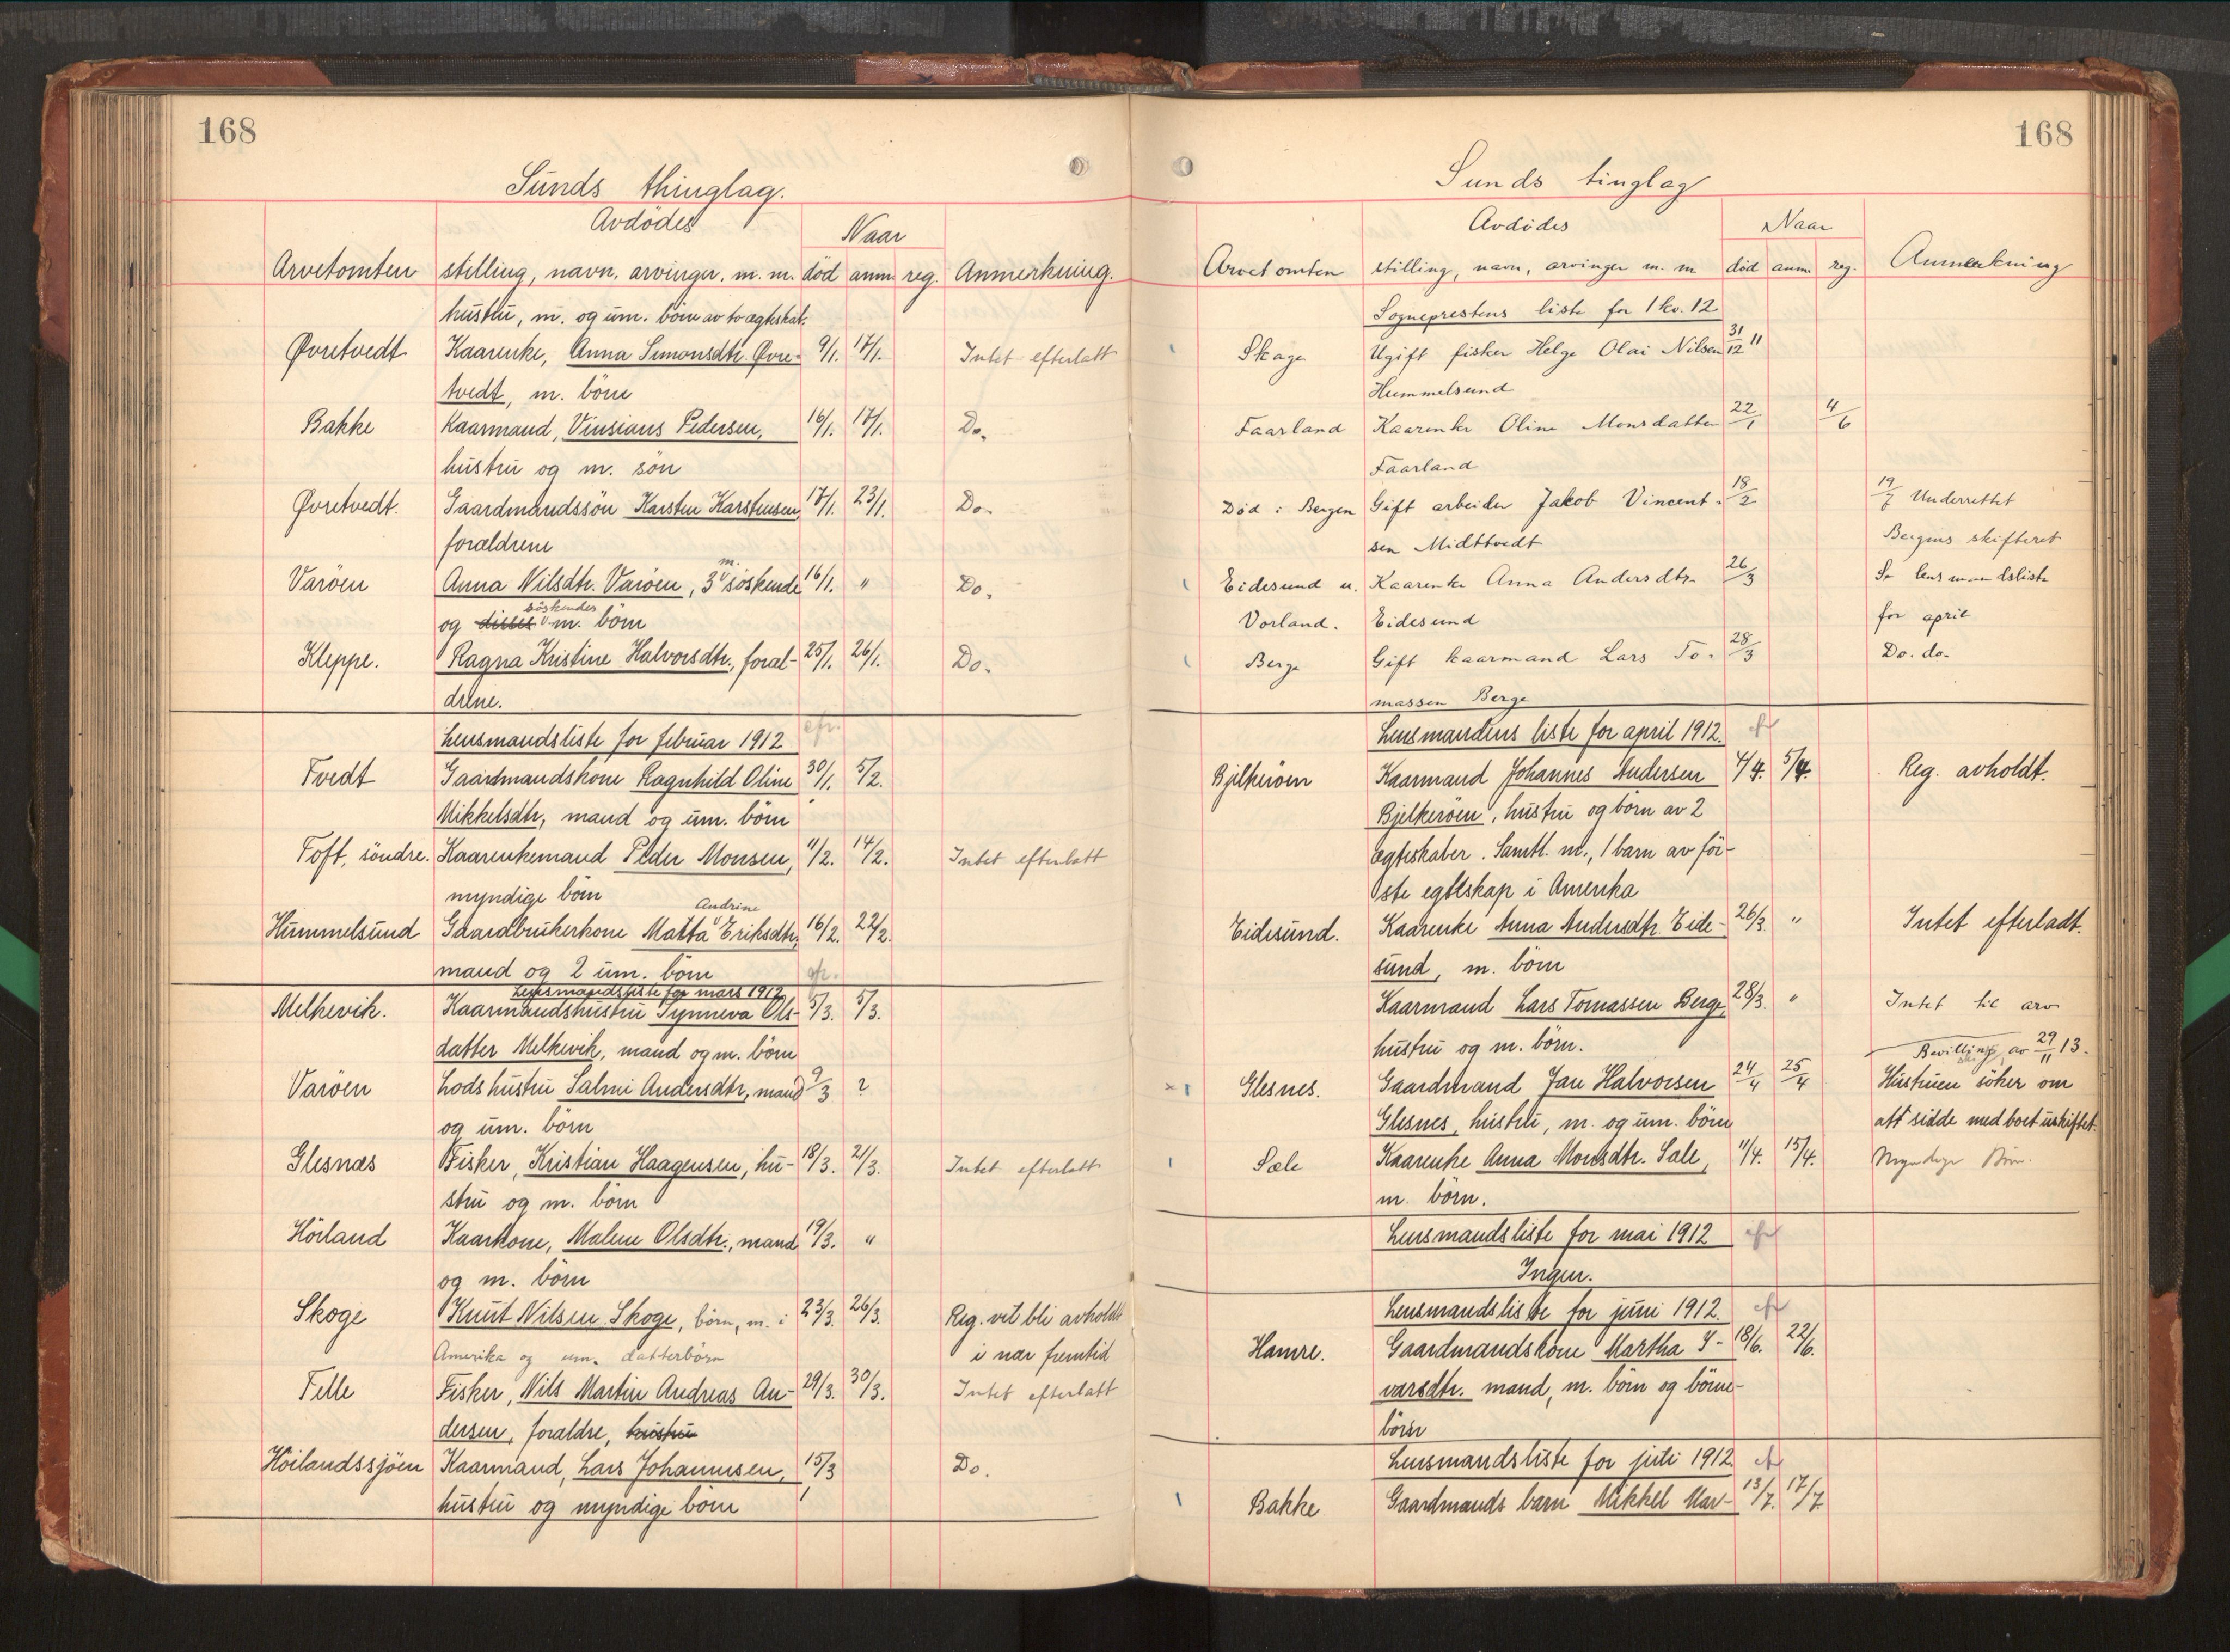 168
Sunds thinglag.
Avdödes
Naar
Arvetomten stilling, navn, arvinger, m. m. död anm. reg. Anmerkning.
hustru, m. og um. börn av to ægteskab.
Øvretvedt Kaarenke, Anna Simonsdtr. Øvre- 9/1. 17/1. Intet efterlatt
tvedt, m. börn
Bakke Kaarmand, Vinsians Pedersen, 16/1. 17/1. Do.
hustru og m. sön
Øvretvedt. Gaardmandssön Karsten Karstensen, 17/1. 23/1. Do.
forældrene
m.
Varöen Anna Nilsdtr. Varöen, 3 söskende 16/1. " Do.
söskendes
og disses m. börn
Kleppe. Ragna Kristine Halvorsdtr., foræl- 25/1. 26/1. Do.
drene.
Lensmandsliste for februar 1912 efr.
Tvedt Gaardmandskone Ragnhild Oline 30/1. 5/2.
Mikkelsdtr, mand og um. börn
Toft, söndre. Kaarenkemand Peder Monsen, 11/2. 14/2. Intet efterlatt
myndige börn
Andrine
Hummelsund Gaardbrukerkone Matta Eriksdtr, 16/2. 22/2.
mand og 2 um. börn
Lensmandsliste for mars 1912
Melkevik. Kaarmandshustru Synneva Ols- 5/3. 5/3.
datter Melkevik, mand og m. börn
Varöen Lodshustru Salmi Andersdtr, mand 9/3 ?
og um. börn
Glesnæs Fisker, Kristian Haagensen, hu- 18/3. 21/3. Intet efterlatt
stru og m. börn
Hörland Kaarkone, Malene Olsdtr., mand 19/3. "
og m. börn
Skoge Knut Nilsen Skoge, börn, m. i 23/3. 26/3. Reg. vil bli avholdt
Amerika og um. datterbörn i nær fremtid
Telle Fisker, Nils Martin Andreas An- 29/3. 30/3. Intet efterlatt
dersen, forældre, hustru
Höilandssjöen Kaarmand, Lars Johannesen, 15/3 Do.
hustru og myndige börn
168
Sunds tinglag
Avdödes
Naar
Arvetomten stilling, navn, arvinger m. m död anm. reg. Anmerkning
Sogneprestens liste for 1 kv. 12
Skage Ugift fisker Helge Olai Nilsen 31/12 11
Hummelsund
Faarland Kaarenke Oline Monsdatter 22/1 4/6
Faarland
Död i Bergen Gift arbeider Jakob Vincent- 18/2 19/7 Underrettet
sen Midttvedt Bergens skifteret
Eidesund u. Kaarenke Anna Andersdtr. 26/3 Se lensmandsliste
Vorland. Eidesund for april
Berge Gift kaarmand Lars To- 28/3 Do. do.
massen Berge
Lensmandens liste for april 1912.
Bjelkeröen Kaarmand Johannes Andersen 4/4. 5/4. Reg. avholdt.
Bjelkeröen, hustru og börn av 2
ægteskaber. Samtl. m., 1 barn av för-
ste egteskap i Amerika
Eidesund. Kaarenke Anna Andersdtr. Eide- 26/3. " Intet efterladt.
sund, m. börn
Kaarmand Lars Tomassen Berge, 28/3. " Intet til arv
hustru og m. börn.
Bevilling av 29/11 13.
Glesnes. Gaardmand Jan Halvorsen 24/4 25/4 Hustruen söker om
Glesnes, hustru, m. og um. börn att sidde med boet uskiftet.
Sæle Kaarenke Anna Monsdtr. Sale, 11/4. 15/4. Myndige Börn.
m. börn.
Lensmandsliste for mai 1912
Ingen.
Lensmandsliste for juni 1912.
Hamre. Gaardmandskone Martha I- 18/6. 22/6.
varsdtr. mand, m. börn og börne-
börn
Lensmandsliste for juli 1912
Bakke Gaardmands barn Mikkel Mar- 13/7. 17/7.